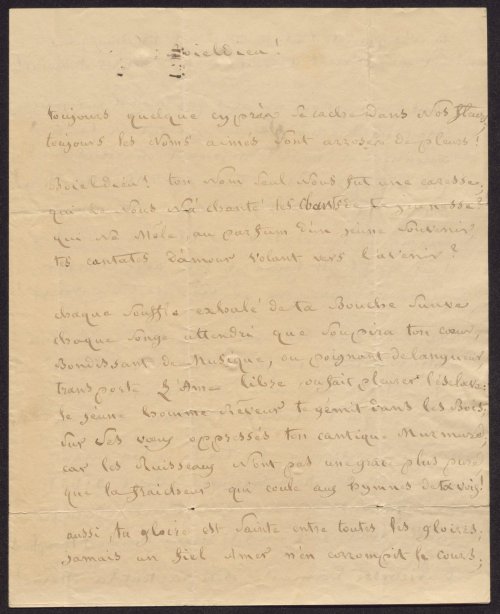 Boieldieu !
toujours quelque cyprès se cache dans nos fleurs,
toujours les Noms aimés sont arrosés de pleurs !
Boieldieu ! ton nom seul nous fut une caresse,
qui de nous n'a chanté tes chants de la jeunesse ?
qui n'a Mêlé, au parfum d'un jeune souvenir,
tes cantates d'amour volant vers l'avenir ?
chaque souffle exhalé de ta Bouche suave
chaque songe attendri que soupira ton cœur,
Bondissant de Musique, ou poignant de langueur
transporte L'Ame libre, ou fait pleurer l'esclave :
le jeune homme Rêveur te gémit dans les Bois,
sur ses yeux oppressés ton cantique Murmure,
car les Ruisseaux n'ont pas une grâce plus pure
que la fraicheur qui coule aux hymnes de ta voix !
aussi, ta gloire est sainte entre toutes les gloires ;
jamais un fiel Amer n'en corrompit le cours ;